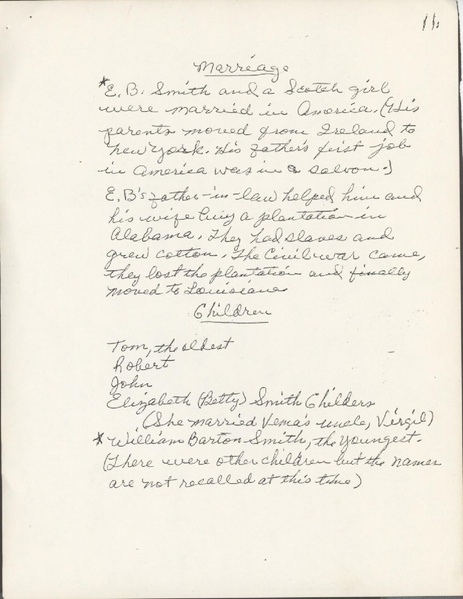 11.
Marriage
*E. B. Smith and a Scotch girl
were married in America. (His
parents moved from Ireland to
New York. His father's first job
in America was in a saloon.)
E. B's father-in-law helped him and
his wife buy a plantation in
Alabama. They had slaves and
grew cotton. The Civil War came,
they lost the plantation and finally
moved to Louisiana
Children
Tom, the oldest
Robert
John
Elizabeth (Betty) Smith Childers
(She married Verna's uncle, Virgil)
*William Barton Smith, the youngest.
(There were other children but the names
are not recalled at this time)